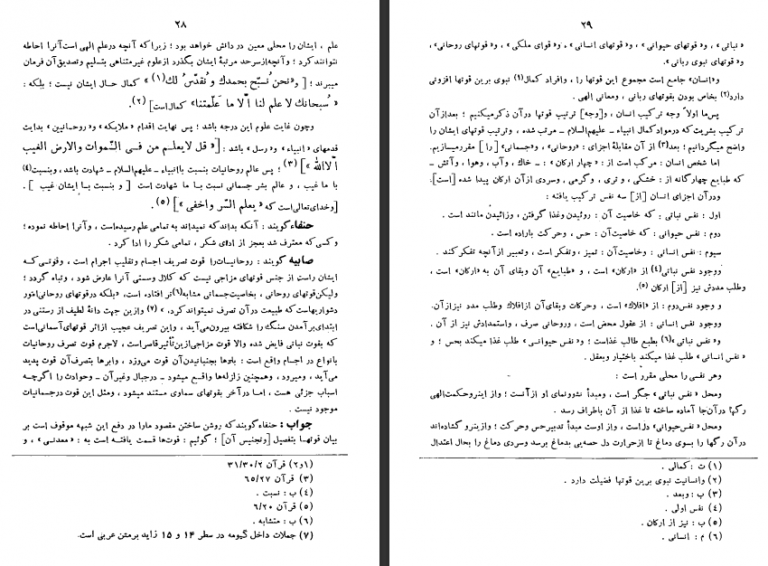 ۲۸
علم ، ایشان را محلی معین در دانش خواهد بود ؛ زیرا که آنچه درعلم الهی است آنرا احاطه
نتوانند کرد ؛ و آنچه از سرحد مرتبهٔ ایشان بگذرد از علوم غیرمتناهی بتسلیم و تصدیق آن فرمان
میبرند ؛ [ و «نحن نُسبّح بحمدك و نُقدّسُ لك(۱) » کمال حال ایشان نیست ؛ بلکه :
« سُبحانك لا علم لنا الّا ما عَلّمتنا» کمال است] (۲).
وچون غایت علوم این درجه باشد ؛ پس نهایت اقدام «ملایکه» و« روحانیین » بدایت
قدمهای «انبیاء» و« رسل » باشد ؛ [« قل لا یعلم من فی السّموات والارض الغیب
الّا الله »] (۳) ؛ پس عالم روحانیات بنسبت با انبیاء - علیهم السلام - شهادت باشد ، وبنسبت(٤)
با ما غیب ، و عالم بشر جسمانی نسبت بـا ما شهادت است [ و بنسبت با ایشان غیب ] .
[وخدای تعالی است که «یعلم السّر واخفی »] (۵) .
حنفاء گویند : آنکه بداند که نمیداند به تمامی علم رسیده است ، و آنرا احاطه نموده ؛
وکسی که معترف شد بعجز از ادای شکر ، تمامی شکر را ادا کرد .
صابیه گویند : روحانیـات را قوت تصریف اجسام وتقلیب اجرام است ، وقوتـی که
ایشان راست از جنس قوتهای مزاجی نیست که کلال وسستی آنرا عارض شود ، وتباه گردد ؛
ولیکن قوتهای روحانی ، بخاصیت جسمانی مشابه(٦) تر افتاده است، «بلکه درقوتهای روحانی امور
دشوار بهاست که طبیعت درآن تصرف نمیتواند کرد، » (۷) وازین جهت دانهٔ لطیف از رستنی در
ابتدای برآمدن سنگ را شکافته بیرون می‌آید ، واین تصریف عجیب از اثر قوتهای آسمانی است
که بقوت نباتی فایض شده والا قوت مزاجی ازین تأثیر قاصر است ، لاجرم قوت تصرف روحانیات
بانواع در اجسام واقع است : بادها بجنبانیدن آن قوت میوزد ، وابرها بتصرف آن قوت پدید
می‌آید ، ومیرود ، وهمچنین زلزله‌ها واقـع میشود - درجبال وغیرآن - وحوادث را اگرچـه
اسباب جزئی هست ، اما در آخر بقوتهای سماوی مستند میشود ، ومثل این قوت درجسمانیات
موجود نیست .
جواب : حنفاء گویند که روشن ساختن مقصود ما را در دفع این شبهه موقوف است بر
بیان قوتهـا بتفصیل [وتجنیس آن] ؛ گوئیم : قوت‌ها قسمت یافتـه است به : « معدنـی » ، و
(۱و۲) قرآن ۳۱/۳۰/۲
(۳) قرآن ٦۵/۲۷
(٤) ب : نسبت .
(۵) قرآن ٦/۲۰
(٦) ب : متشابه .
(۷) جملات داخل گیومه در سطر ۱۴ و ۱۵ زاید برمتن عربی است.
۲۹
« نباتی » ، و« قوتهای حیوانی » ، و« قوتهای انسانی » ، و« قوای ملکی » ، و« قوتهای روحانی » ،
و« قوتهای نبوی ربانی » .
و«انسان» جامع است مجموع این قوتها را ، وافراد کمال(۱) نبوی برین قوتها افزونی
دارد(۲) بخاص بودن بقوتهای ربانی ، ومعانی الهی .
پس ما اولا ً وجه ترکیب انسان ، و[وجه] ترتیب قوتها درآن ذکر میکنیم ؛ بعد از آن
ترکیب بشریت که درمواد کمال انبیاء - علیهم السلام - مرتب شده ، وترتیب قوتهای ایشان را
واضح میگردانیم ؛ بعد(۳) از آن مقابلهٔ اجزای : « روحانی » ، و«جسمانی» [ را ] مقرر میسازیم.
اما شخص انسان : مرکب است از : « چهار ارکان » : - خاك ، وآب ، وهوا ، وآتش -
که طبایع چهارگانه از : خشکی ، و تری ، وگرمی ، وسردی از آن ارکان پیدا شده [است].
ودر آن اجزای انسان [از] سه نفس ترکیب یافته :
اول : نفس نباتی : که خاصیت آن : روئیدن وغذا گرفتن ، وزائیدن مانند است .
دوم : نفس حیوانی : که خاصیت آن : حس ، وحرکت باراده است .
سیوم : نفس انسانی : وخاصیت آن : تمیز ، وتفکر است ، وتعبیر از آنچه تفکر کند .
وجود نفس نباتی(٤) از «ارکان» است ، و « طبایع» آن وبقای آن به «ارکان» است ،
وطلب مددش نیز [از] ارکان (۵).
و وجود نفس دوم : از «افلاك» است ، وحرکات وبقای آن از افلاك وطلب مدد نیز از آن.
ووجود نفس انسانی : از عقول محض است ، و روحانی صرف ، واستمدادش نیز از آن .
و« نفس نباتی »(٦) بطبع طالب غذاست ؛ و« نفس حیوانـی » طلب غذا میکند بحس ؛ و
« نفس انسانی » طلب غذا میکند باختیار وبعقل .
وهر نفسی را محلی مقرر است :
ومحل « نفس نباتی» جگر است ، ومبدأ نشوونمای او از آنست ؛ واز اینرو حکمت الهی
رگها درآن جا آماده ساخته تا غذا از آن باطراف رسد .
ومحل «نفس حیوانی» دل است ، واز اوست مبدأ تدبیر حس وحرکت ؛ وازینرو گشاده اند
در آن رگها را بسوی دماغ تا از حرارت دل حصه‌یی بدماغ برسد وسردی دماغ را بحال اعتدال
(۱) ت : کمالی .
(۲) وانسانیت نبوی برین قوتها فضیلت دارد .
(۳) ب : وبعد .
(٤) نفس اولی .
(۵) ب : نیز از ارکان .
(٦) م : انسانی .